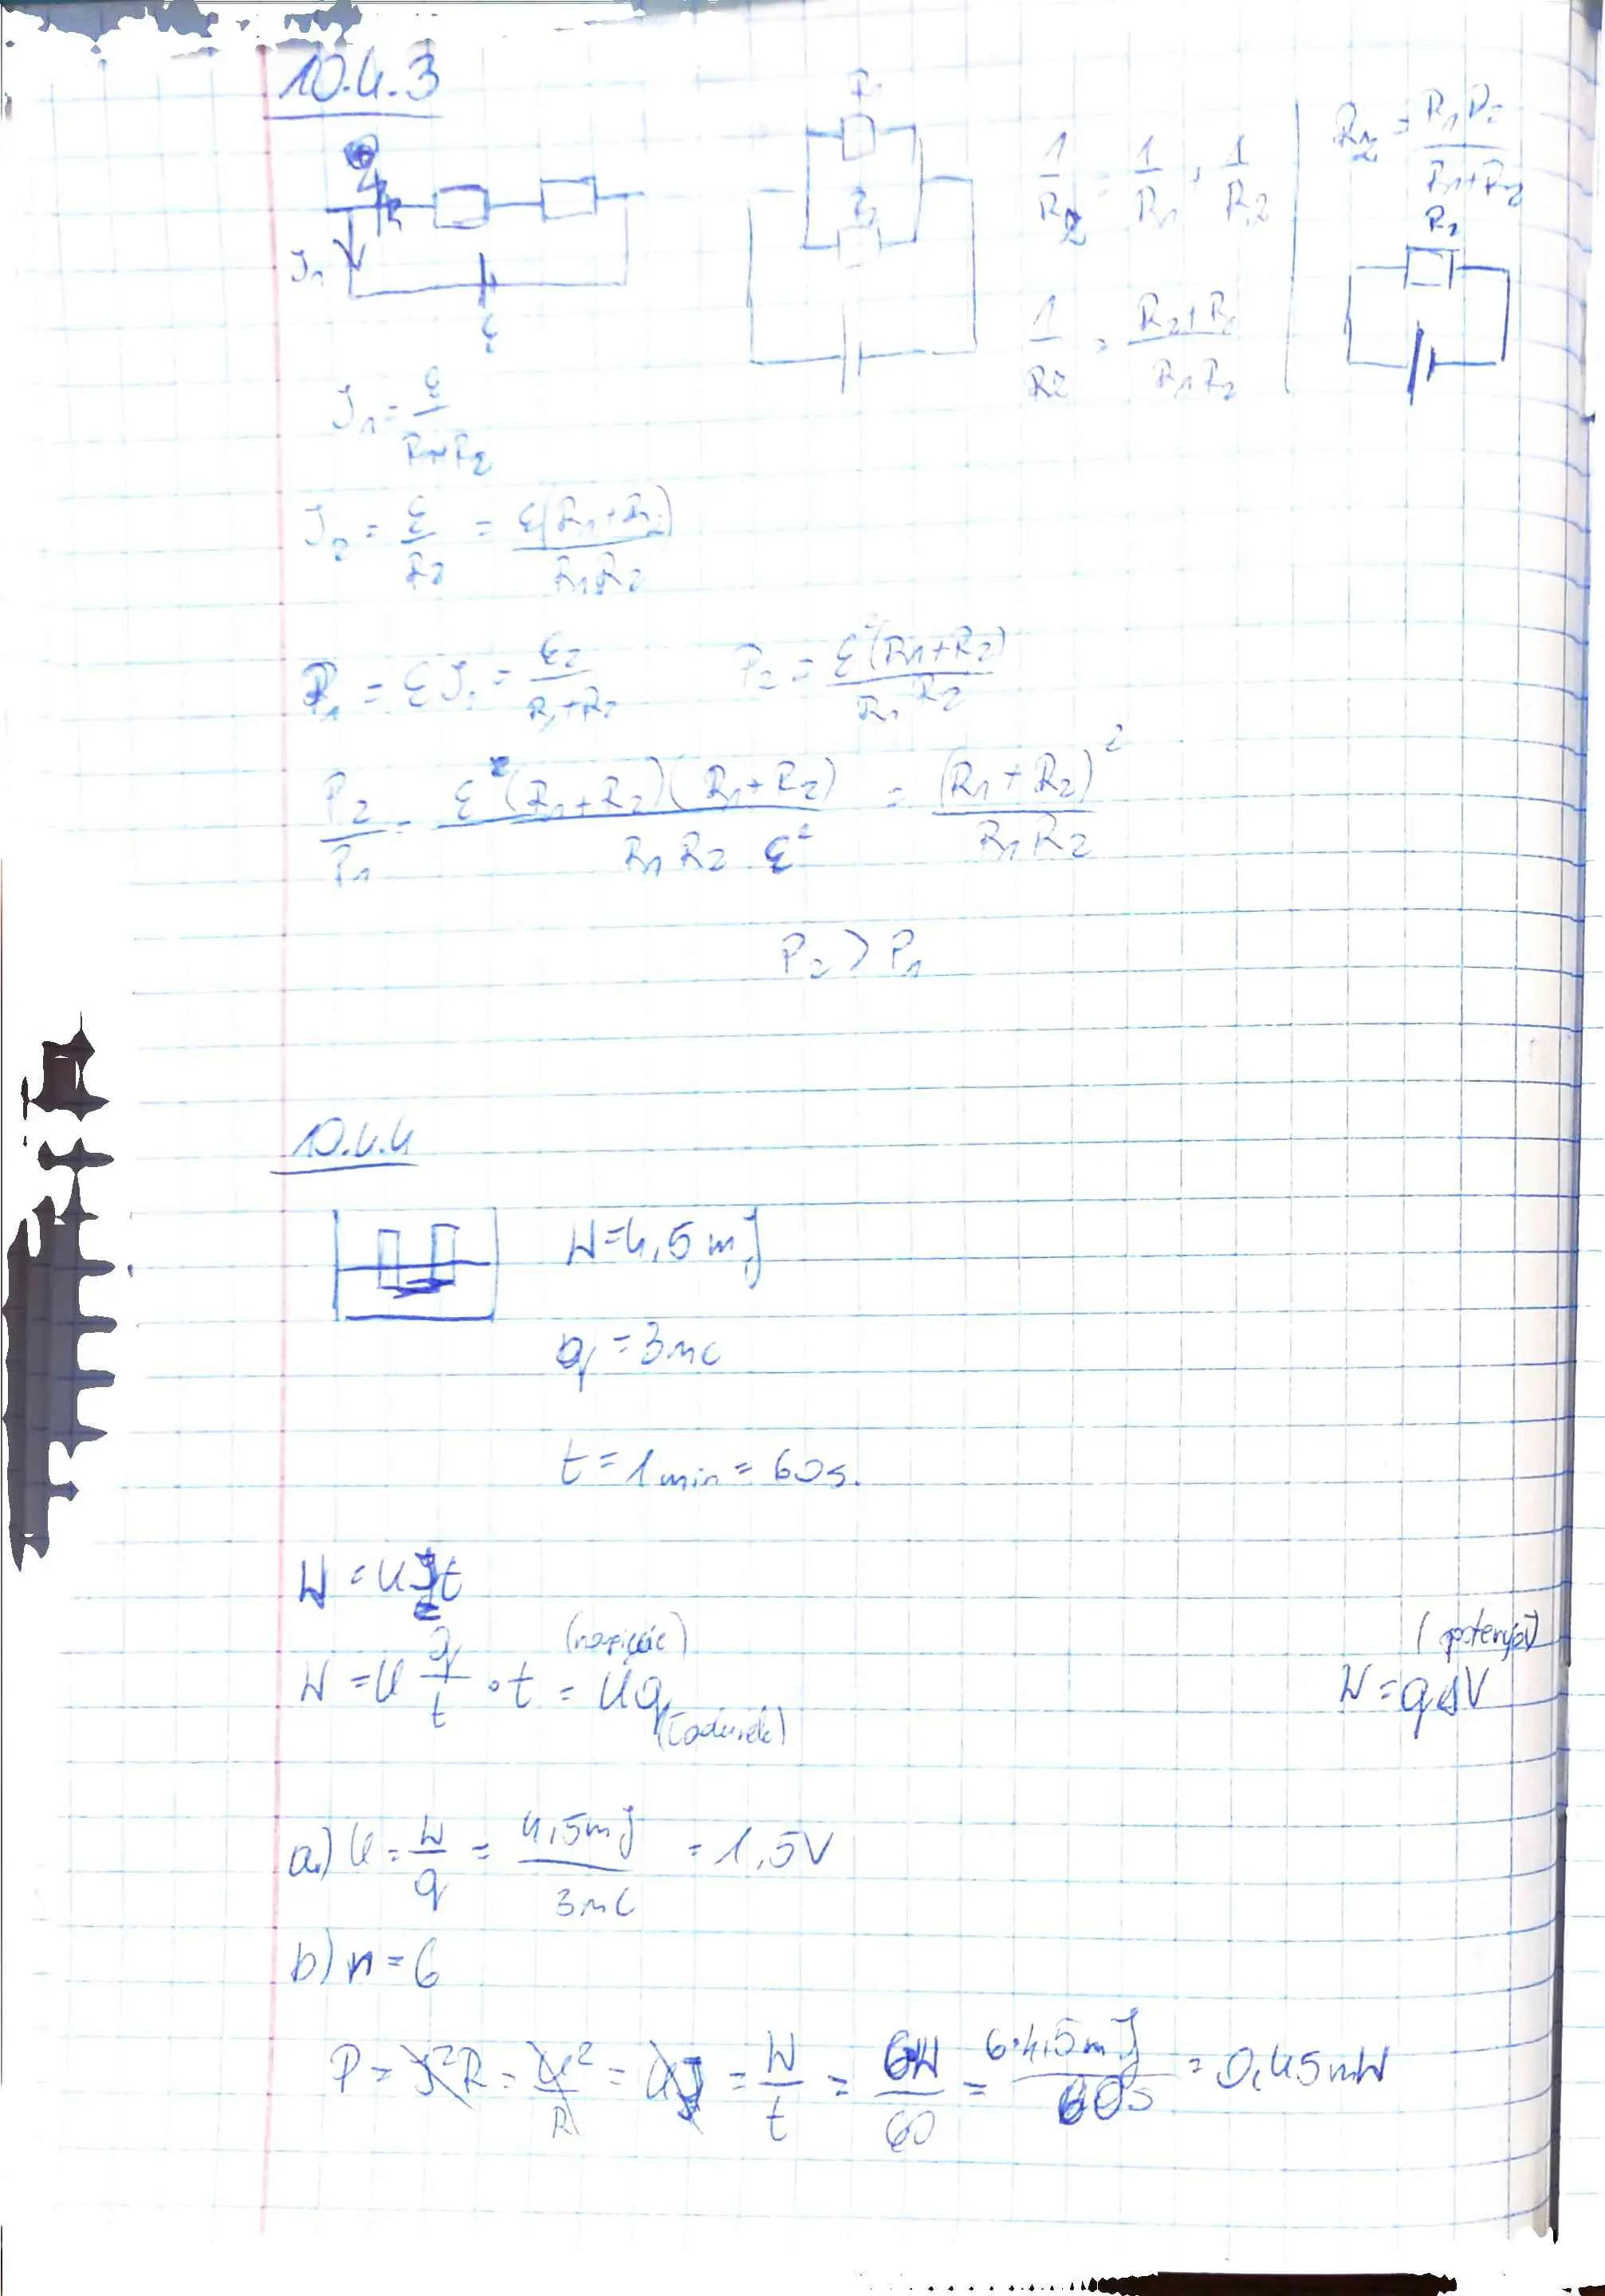 10.4.3
R₁
1/R_Z = 1/R₁ + 1/R₂
R_Z = R₁R₂/(R₁+R₂)
R₂
R_Z
I₁
ε
1/R_Z = (R₂+R₁)/(R₁R₂)
I₁ = ε/(R₁+R₂)
I₂ = ε/R_Z = ε(R₁+R₂)/(R₁R₂)
P₁ = εI₁ = ε²/(R₁+R₂) P₂ = ε²(R₁+R₂)/(R₁R₂)
P₂/P₁ = ε²(R₁+R₂)(R₁+R₂)/(R₁R₂ ε²) = (R₁+R₂)²/(R₁R₂)
P₂ > P₁
10.4.4
W = 4,5 mJ
q = 3mC
t = 1min = 60s.
W = UIt
W = U q/t · t = Uq (napięcie) (ładunek)
(potencjał)
W = qΔV
a) U = W/q = 4,5mJ/3mC = 1,5V
b) n = 6
P = I²R = U²/R = UI = W/t = 6W/60 = 6·4,5mJ/60s = 0,45mW